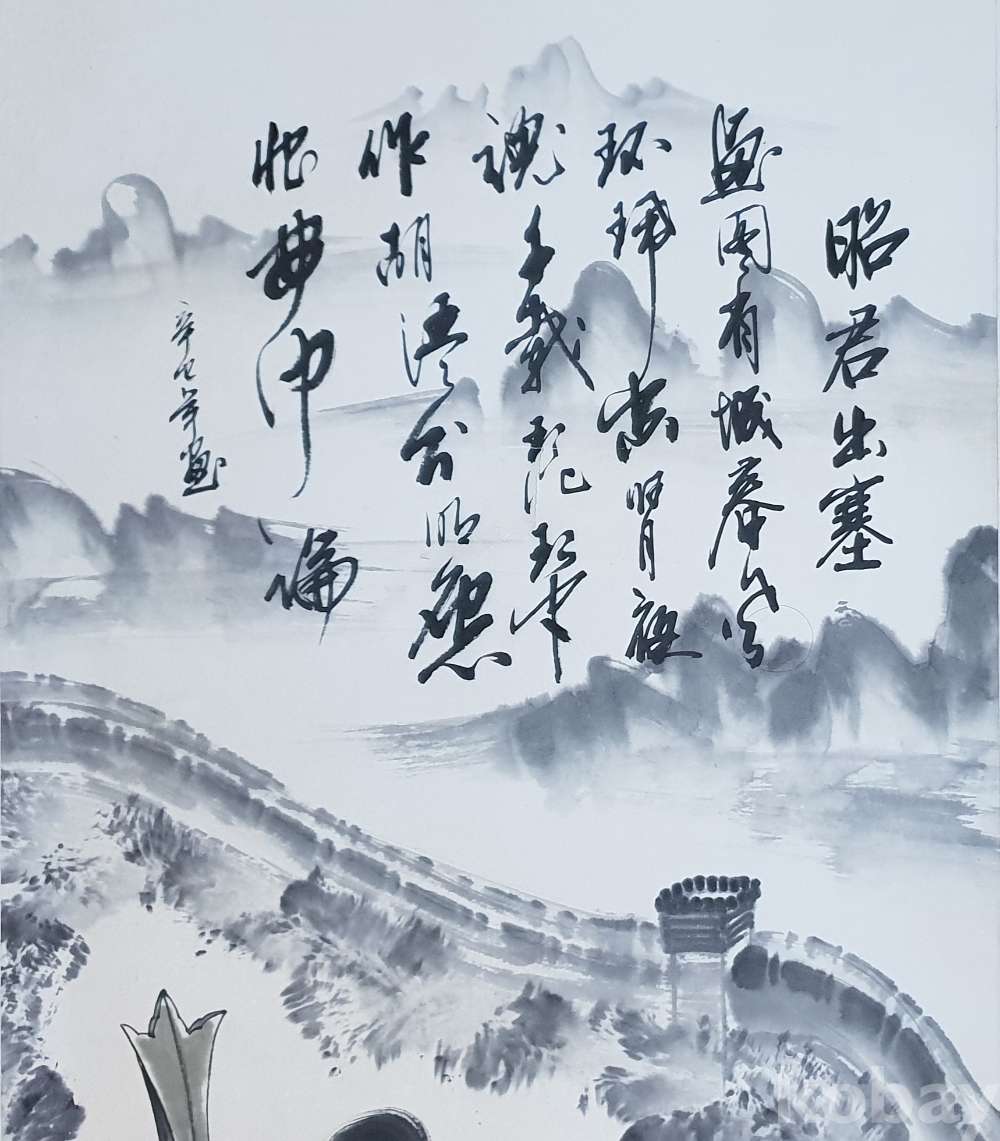 昭君出塞
畫图有城春风
环珮月夜
魂千载琵琶
作胡语分明怨
恨曲中論
辛巳年画
kobay